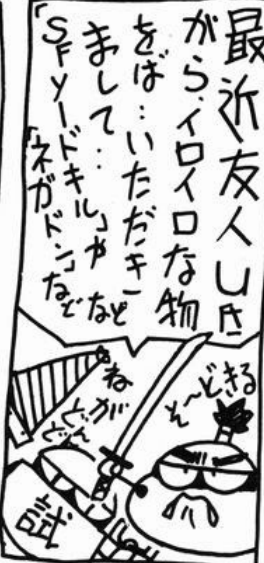 最近友人U氏
がら、イロイロな物
をば…いただき
まして‥
「SFソードキル」や
「ネガドン」などなど
そ〜どきる
ねが
どん
試